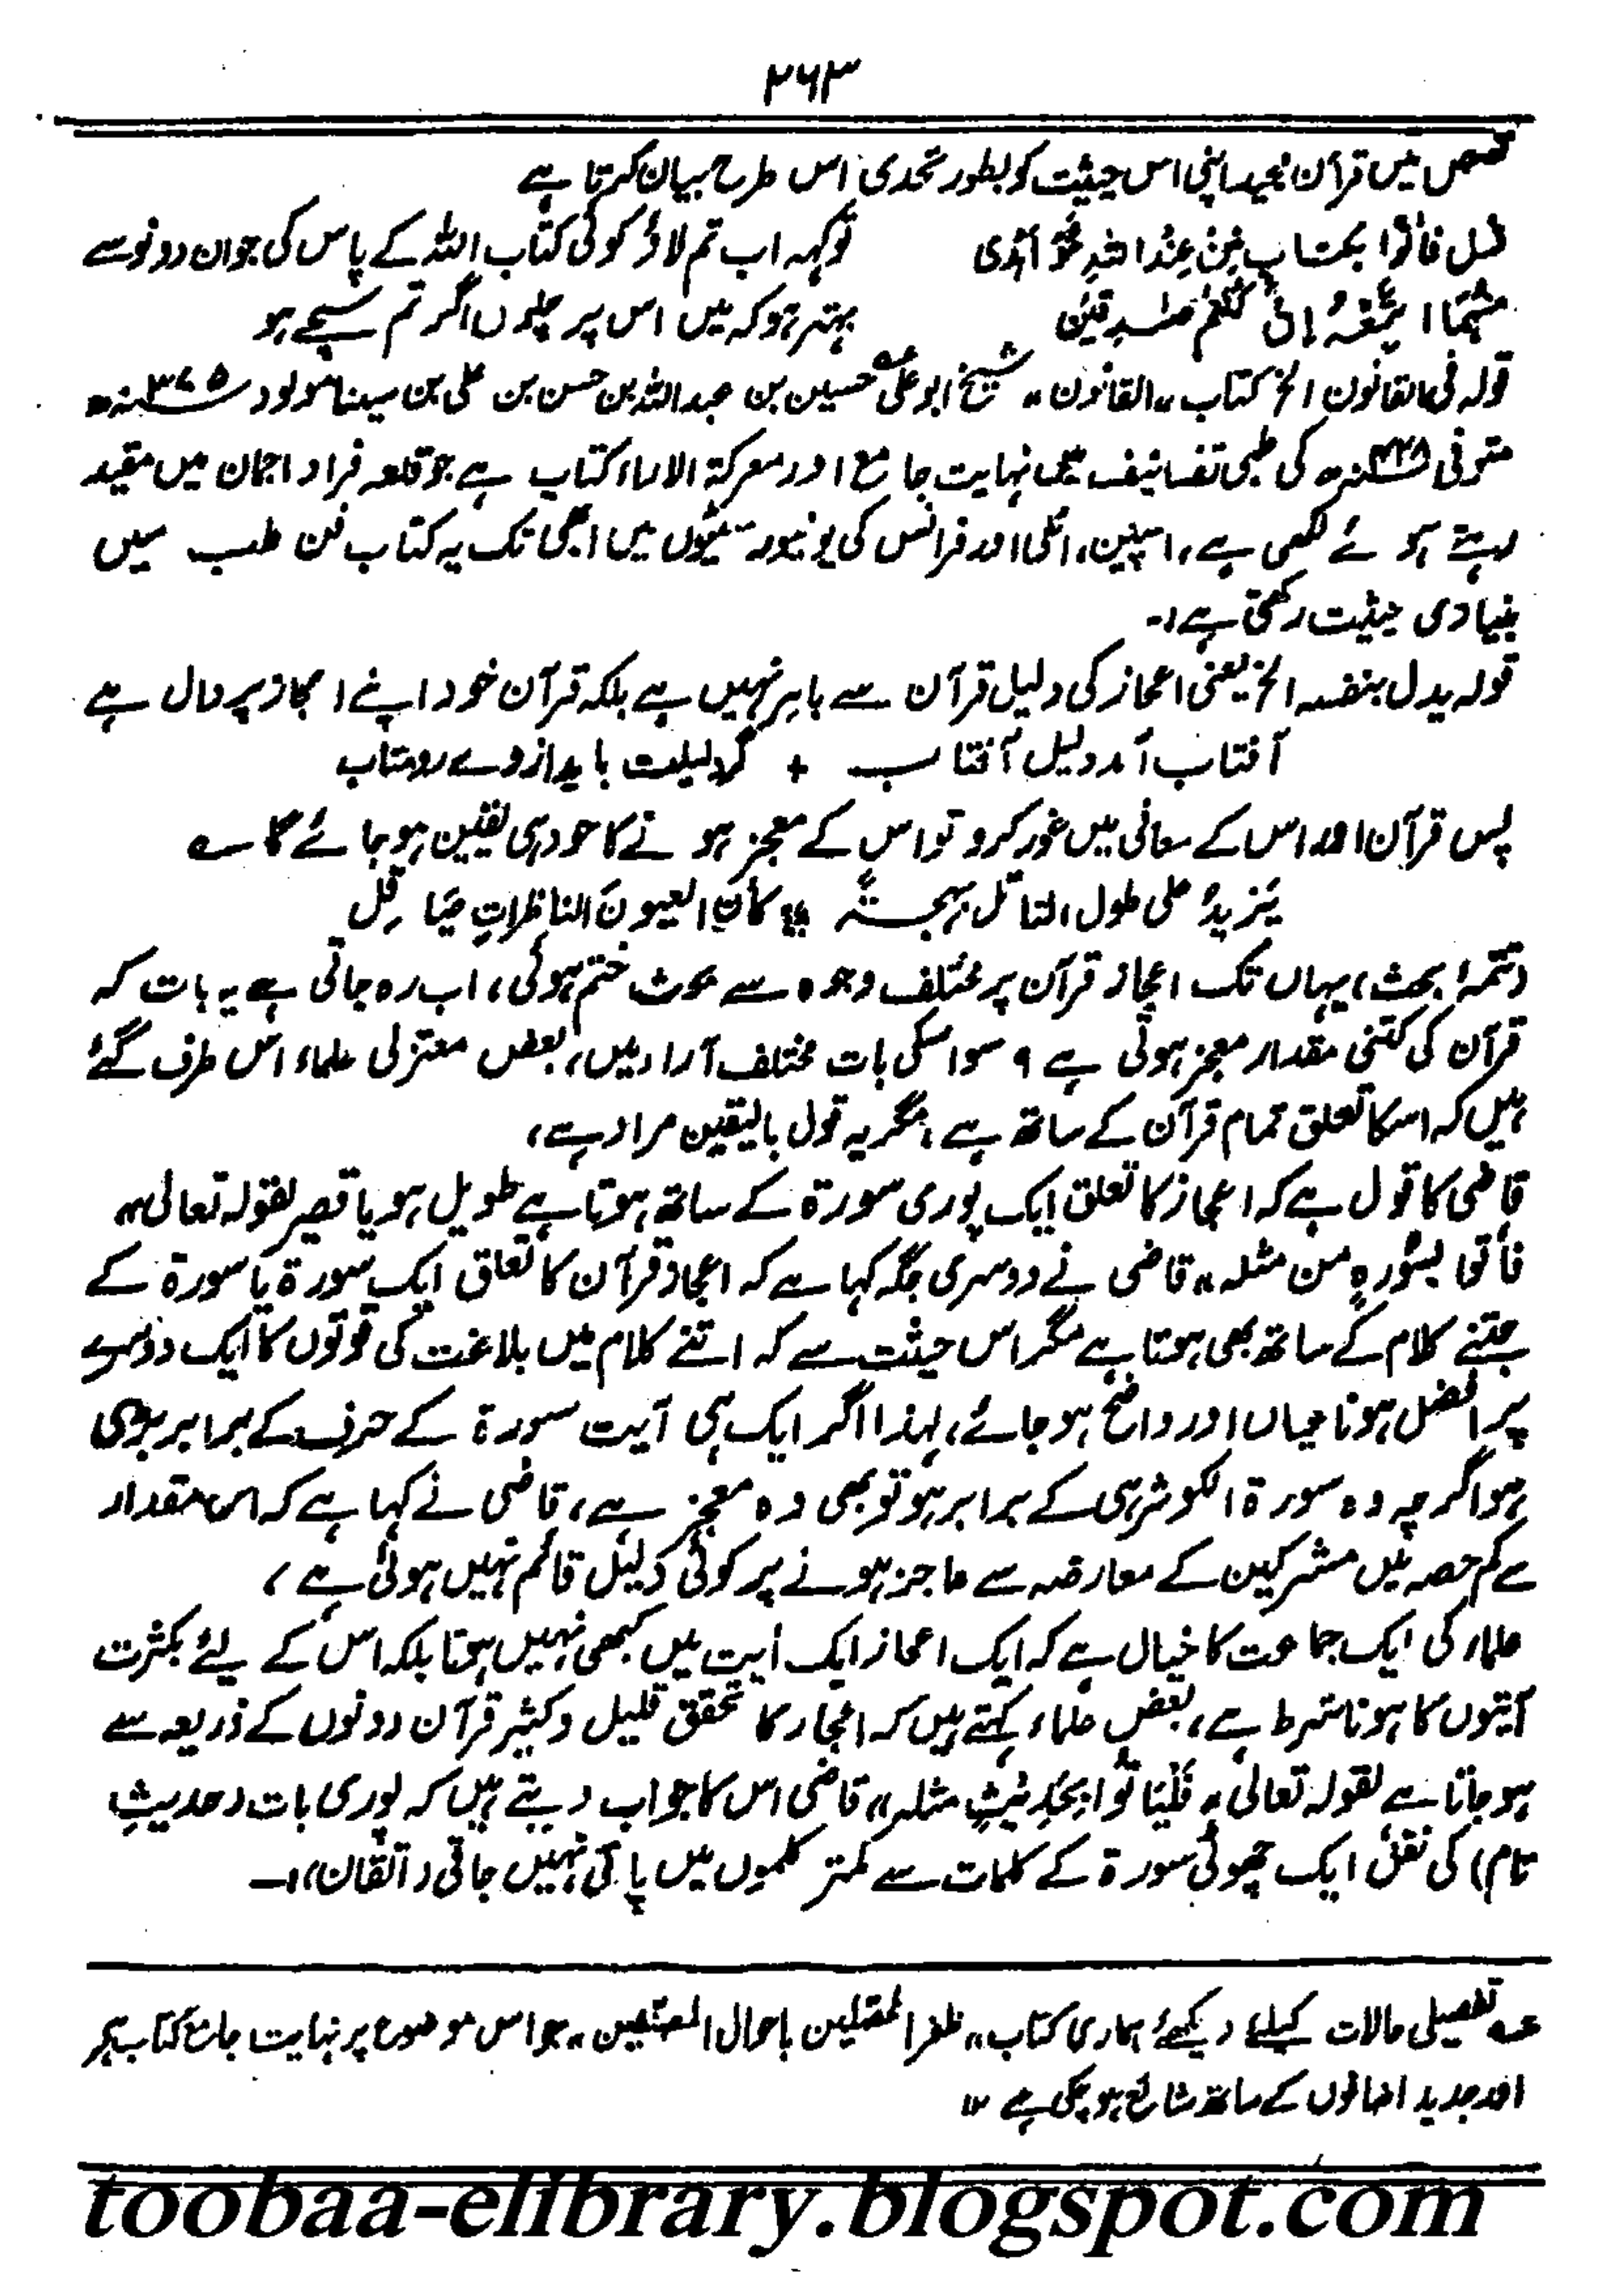 ۲۶۳
قصص میں قرآن مجید اپنی اس حیثیت کو بطور تحدی اس طرح بیان کرتا ہے
قل فأتوا بکتاب مِّنْ عِنْدِ اللهِ هُوَ اَهْدٰی
توکہہ اب تم لاؤ کوئی کتاب اللہ کے پاس کی جو ان دونوں سے
مِنْهُمَا اَتَّبِعْهُ اِنْ كُنْتُمْ صٰدِقِیْنَ
بہتر ہو کہ میں اس پر چلوں اگر تم سچے ہو
قولہ فی القانون الخ کتاب ،،القانون،، شیخ ابو علی عہ حسین بن عبداللہ بن حسن بن علی بن سینا مولود ۳۷۵ھ
متوفی ۴۲۸ھ کی طبی تصانیف میں نہایت جامع اور معرکۃ الاراء کتاب ہے جو قلعہ فراد اجمان میں مقید
رہتے ہو ئے لکھی ہے، اسپین، اٹلی اور فرانس کی یونیورسٹیوں میں ابھی تک یہ کتاب فن طب میں
بنیادی حیثیت رکھتی ہے،۔
قولہ یدل بنفسہ الخ یعنی اعجاز کی دلیل قرآن سے باہر نہیں ہے بلکہ قرآن خود اپنے اعجاز پر دال ہے
آفتاب آمد دلیل آفتاب + گر دلیلت باید از وے رو متاب
پس قرآن اور اس کے معانی میں غور کرو تو اس کے معجز ہو نے کا خود ہی یقین ہو جائے گا ے
یَزیدُ علی طول التاَمّل بَہجۃً ÷ کأن العیونَ الناظراتِ صَیَاقِل
(تتمۂ بحث) یہاں تک اعجاز قرآن پر مختلف وجوہ سے بحث ختم ہوئی، اب رہ جاتی ہے یہ بات کہ
قرآن کی کتنی مقدار معجز ہوتی ہے ؟ سو اسکی بات مختلف آراء ہیں، بعض معتزلی علماء اس طرف گئے
ہیں کہ اسکا تعلق تمام قرآن کے ساتھ ہے، مگر یہ قول بالیقین مراد ہے،
قاضی کا قول ہے کہ اعجاز کا تعلق ایک پوری سورۃ کے ساتھ ہوتا ہے طویل ہو یا قصیر لقولہ تعالی،،
فأتوا بسُورہٍ من مثلہ،، قاضی نے دوسری جگہ کہا ہے کہ اعجاز قرآن کا تعلق ایک سورۃ یا سورۃ کے
جتنے کلام کے ساتھ بھی ہوتا ہے مگر اس حیثیت سے کہ اتنے کلام میں بلاغت کی قوتوں کا ایک دوسرے
پر افضل ہونا عیاں اور واضح ہو جائے، لہذا اگر ایک ہی آیت سورۃ کے حرف کے برابر بڑی
ہو اگرچہ وہ سورۃ الکوثر ہی کے برابر ہو تو بھی وہ معجز ہے، قاضی نے کہا ہے کہ اس مقدار
سے کم حصہ میں مشرکین کے معارضہ سے عاجز ہونے پر کوئی دلیل قائم نہیں ہوئی ہے،
علماء کی ایک جماعت کا خیال ہے کہ ایک اعجاز ایک آیت میں کبھی نہیں ہوتا بلکہ اس کے لیئے بکثرت
آیتوں کا ہونا شرط ہے، بعض علماء کہتے ہیں کہ اعجاز کا تحقق قلیل وکثیر قرآن دونوں کے ذریعہ سے
ہو جاتا ہے لقولہ تعالی ،، فَلْیَاتُوا بِحَدِیْثٍ مثلہ،، قاضی اس کا جواب دیتے ہیں کہ پوری بات (حدیثِ
تام) کی نقل ایک چھوٹی سورۃ کے کلمات سے کمتر کلموں میں پائی نہیں جاتی (اتقان)،۔
عہ تفصیلی حالات کیلئے دیکھئے ہماری کتاب ،،ظفر المحصلین باحوال المصنفین،، جو اس موضوع پر نہایت جامع کتاب ہے
اور جدید اضافوں کے ساتھ شائع ہو چکی ہے ۱۲
toobaa-elibrary.blogspot.com